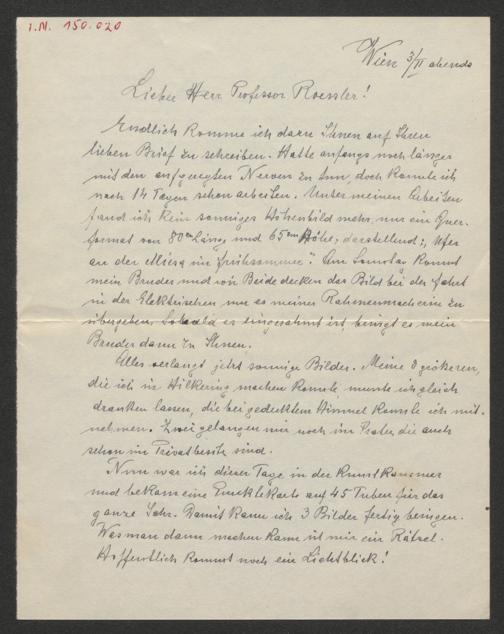 I.N. 150.020
Wien 3/II abends
Lieber Herr Professor Roessler!
Endlich komme ich dazu Ihnen auf Ihren
lieben Brief zu schreiben. Hatte anfangs noch länger
mit den aufgeregten Nerven zu tun, doch konnte ich
nach 14 Tagen schon arbeiten. Unter meinen Arbeiten
fand ich kein sonniges Höhenbild mehr, nur ein Quer-
format von 80 cm Läng. und 65 cm Höhe, darstellend: „Ufer
an der im Frühsommer“. Am Samstag kommt
mein Bruder und wir Beide decken das Bild bei der Fahrt
in der Elektrischen, um es meiner Rahmenmacherin zu
übergeben. Sobald es eingerahmt ist, bringt es mein
Bruder dann zu Ihnen.
Alles verlangt jetzt sonnige Bilder. Meine 3 grösseren,
die ich in Hilkering machen konnte, musste ich gleich
draußen lassen, die bei gedecktem Himmel konnte ich mit-
nehmen. Zwei gelangen mir noch im Prater, die auch
schon im Privatbesitz sind.
Nun war ich dieser Tage in der Kunstkammer
und bekam eine Punktekarte auf 45 Tuben für das
ganze Jahr. Damit kann ich 3 Bilder fertig bringen.
Was man dann machen kann ist mir ein Rätsel.
Hoffentlich kommt noch ein Lichtblick!